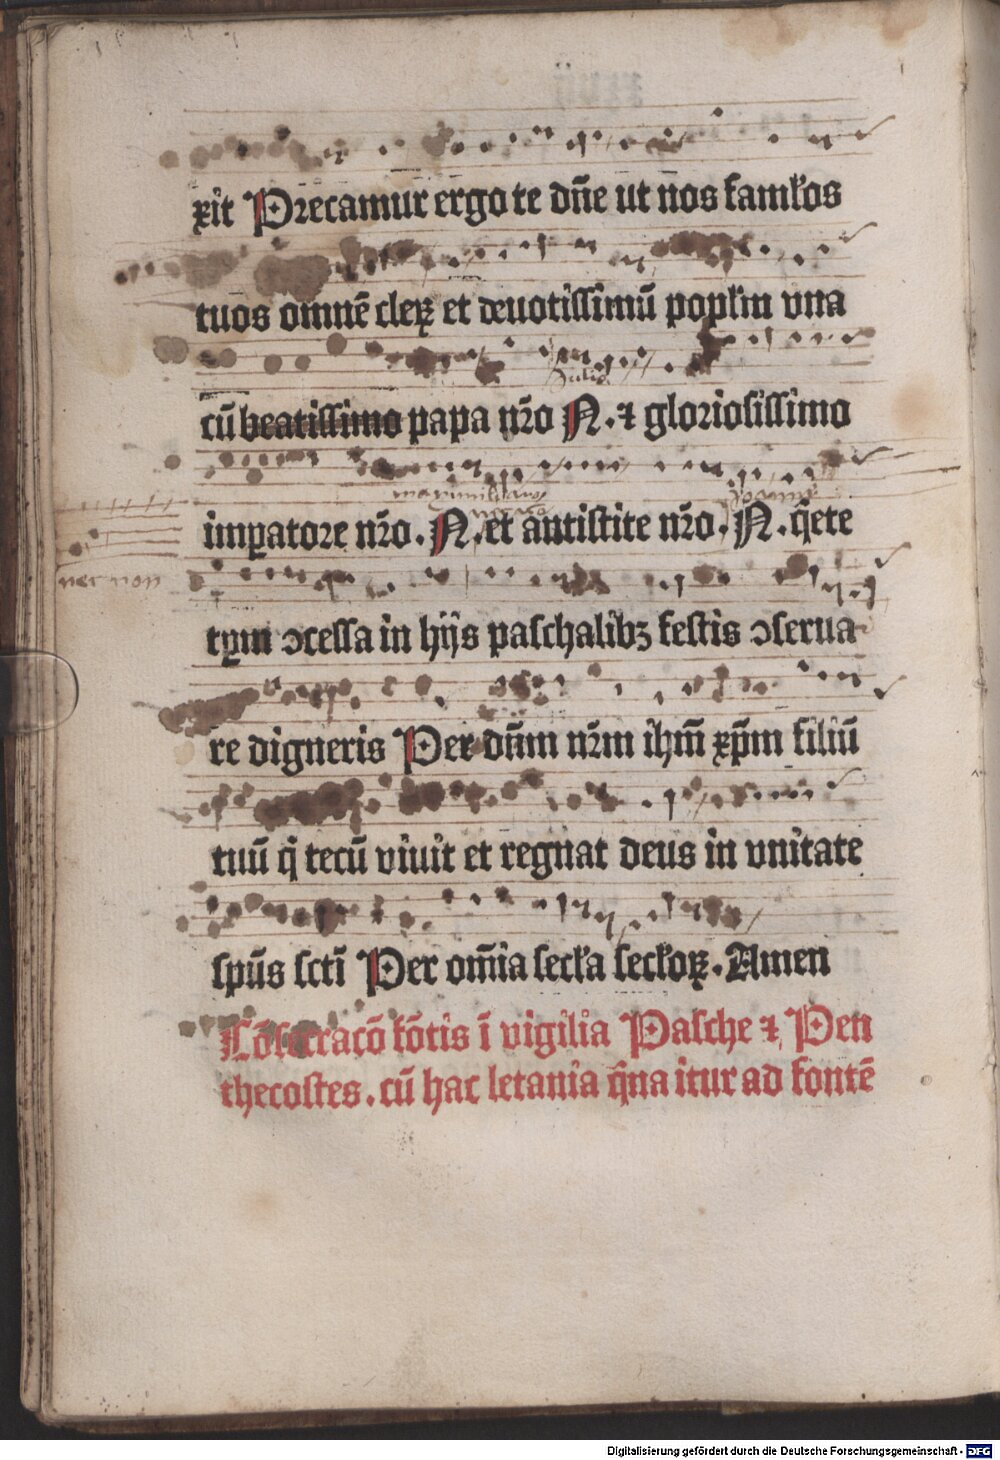 xit Precamur ergo te dn̄e ut nos famłos
tuos omnē cleꝝ et deuotissimū popłm vna
Julio
cū beatissimo papa nr̄o N. ⁊ gloriosissimo
maximiliano
imꝑatore nr̄o. N. et antistite nr̄o. N. q̄ete
nec non
tꝑm ↄcessa in hijs paschalibꝫ festis ↄserua
re digneris Per dn̄m nr̄m ihm̄ xp̄m filiū
tuū q̄ tecū viuit et regnat deus in vnitate
spūs scti Per om̄ia secła secłoꝝ. Amen
Cōsecracō fōtis ī vigilia Pasche ⁊ Pen
thecostes. cū hac letania q̄na itur ad fontē
Digitalisierung gefördert durch die Deutsche Forschungsgemeinschaft - DFG